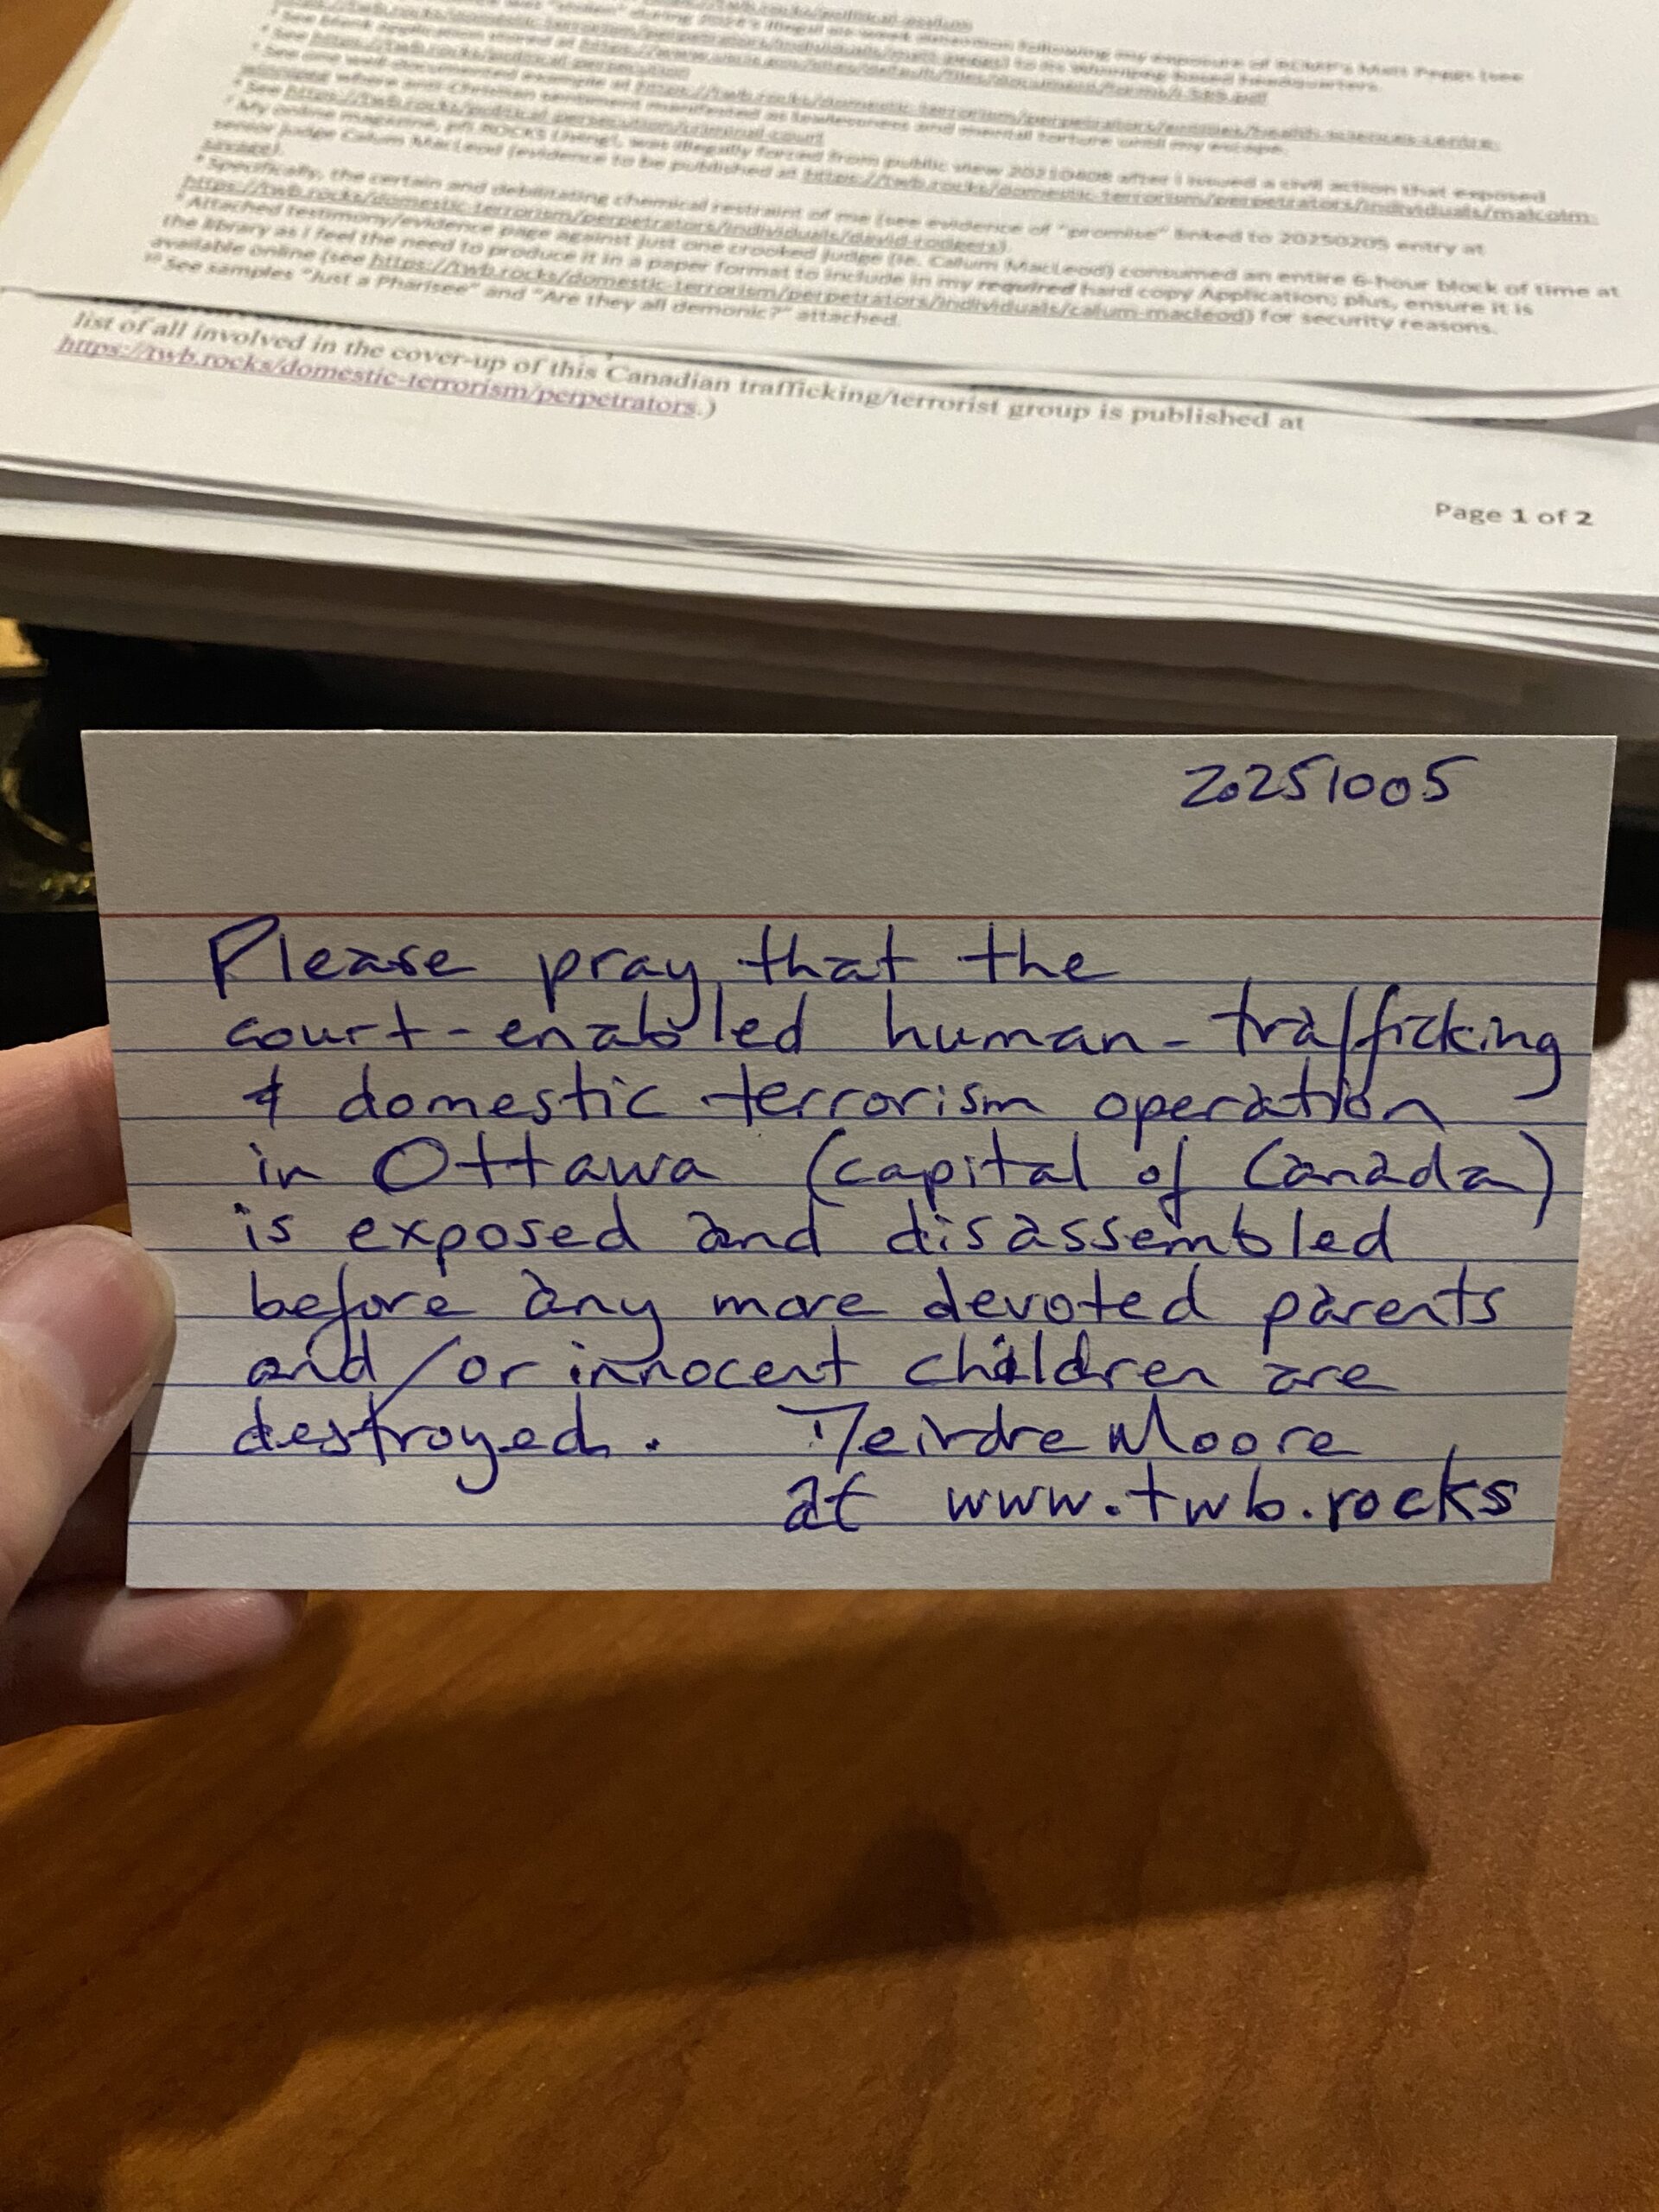 following my exposure of RCMP's Matt Peggs (see
to its Winnipeg-based headquarters.
⁴ See blank application stored at https://www.uscis.gov/sites/default/files/document/forms/i-589.pdf
⁵ See https://twb.rocks/political-persecution
⁶ See one well documented example at https://twb.rocks/domestic-terrorism/perpetrators/entities/health-sciences-centre-
winnipeg where anti-Christian sentiment manifested as lawlessness and mental torture until my escape.
See https://twb.rocks/political-persecution/criminal-court
My online magazine, was illegally forced from public view 20210608 after I issued a civil action that exposed
senior judge Calum MacLeod (evidence to be published at https://twb.rocks/domestic-terrorism/perpetrators/individuals/malcolm-
savage).
⁸ Specifically, the certain and debilitating chemical restraint of me (see evidence of "promise" linked to 20250205 entry at
https://twb.rocks/domestic-terrorism/perpetrators/individuals/david-rodgers).
⁹ Attached testimony/evidence page against just one crooked judge (ie. Calum MacLeod) consumed an entire 6-hour block of time at
the library as I feel the need to produce it in a paper format to include in my required hard copy Application; plus, ensure it is
available online (see https://twb.rocks/domestic-terrorism/perpetrators/individuals/calum-macleod) for security reasons.
¹⁰ See samples "Just a Pharisee" and "Are they all demonic?" attached.
list of all involved in the cover-up of this Canadian trafficking/terrorist group is published at
https://twb.rocks/domestic-terrorism/perpetrators.)
Page 1 of 2
20251005
Please pray that the
court-enabled human-trafficking
& domestic terrorism operation
in Ottawa (capital of Canada)
is exposed and disassembled
before any more devoted parents
and/or innocent children are
destroyed. Deirdre Moore
at www.twb.rocks